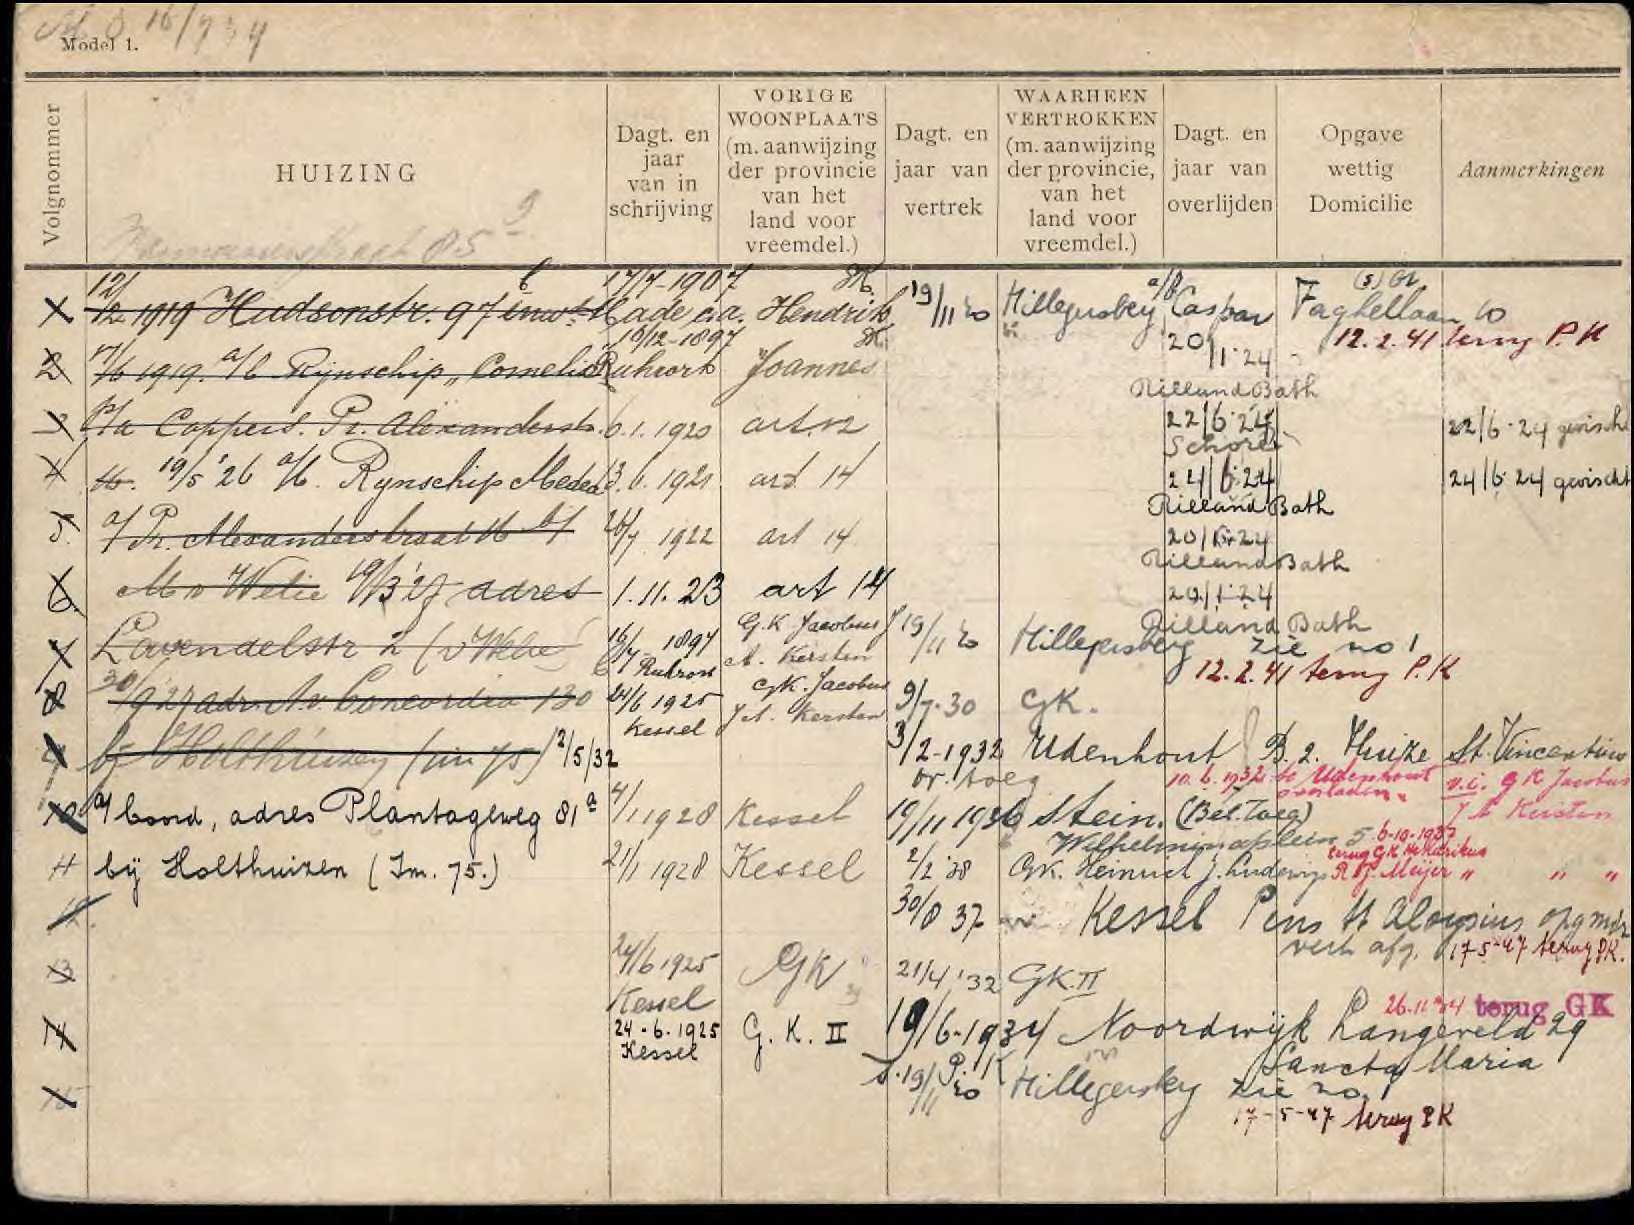 16/7 34
Model 1.
Volgnommer
HUIZING
Dagt. en jaar van in schrijving
VORIGE WOONPLAATS (m. aanwijzing der provincie van het land voor vreemdel.)
Dagt. en jaar van vertrek
WAARHEEN VERTROKKEN (m. aanwijzing der provincie, van het land voor vreemdel.)
Dagt. en jaar van overlijden
Opgave wettig Domicilie
Aanmerkingen
85
12/12 1919 Hudsonstr. 97 17/7-1907 Hendrik 19/11 40 Hillegersberg a/b Caspar Faghellaan 60
12.2.41 terug P.K
2 17/6 1919 a/b Rijnschip "Cornelia 16/12-1897 Ruhrort Joannes 20/1-24
Rilland Bath
3 p/a Coppers. Pr. Alexanderstr. 6.1.1920 art. 12 22/6-24 22/6-24 gewischt
Schore
4 19/5 '26 a/b. Rynschip Medea 3.6.1921 art 14 24/6-24 24/6-24 gewischt
Rilland Bath
5. a/ Pr. Alexanderstraat 16 b/ 26/7 1922 art 14 20/6-24
Rilland Bath
6. M v Welie 19/3 '27 adres 1.11.23 art 14 20/1-24
Rilland Bath
7 Lavendelstr 2 (v Welie 16/7 1897 Ruhrort G.K Jacobus J A. Kersten 19/11 40 Hillegersberg zie no 1
12.2.41 terug P.K
8 30/9 27 adr. Av Concordia 130 24/6 1925 Kessel GK. Jacobus J A. Kersten 9/7-30 GK.
9 bij Holthuizen (im 75) 2/5/32 3/2-1932 Udenhout B.2. Huize St. Vincentius
ov. toeg 10.6.1932 to Udenhout overladen v.i. GK Jacobus J A Kersten
10 a/ boord, adres Plantageweg 81a 4/1 1928 Kessel 19/11 1936 Stein. (Bet. toeg)
Wilhelminaplein 5 6-10-1937 terug GK Hendrikus
11 bij Holthuizen (Im. 75.) 21/1 1928 Kessel 2/2 '38 GK. Heinrich J. Ludewig R J. Meijer " " "
12. 30/8 37 Kessel Pens St Aloysius opg mdr
vert afg. 17-5-47 terug P.K.
13 24/6 1925 Kessel GK 21/4 '32 GK. II
26-11-34 terug GK
14 24-6-1925 Kessel G. K. II 19/6-1934 Noordwijk Langeveld 29
Sancta Maria
15 P. K 19/11 40 Hillegersberg zie no 1
17-5-47 terug PK